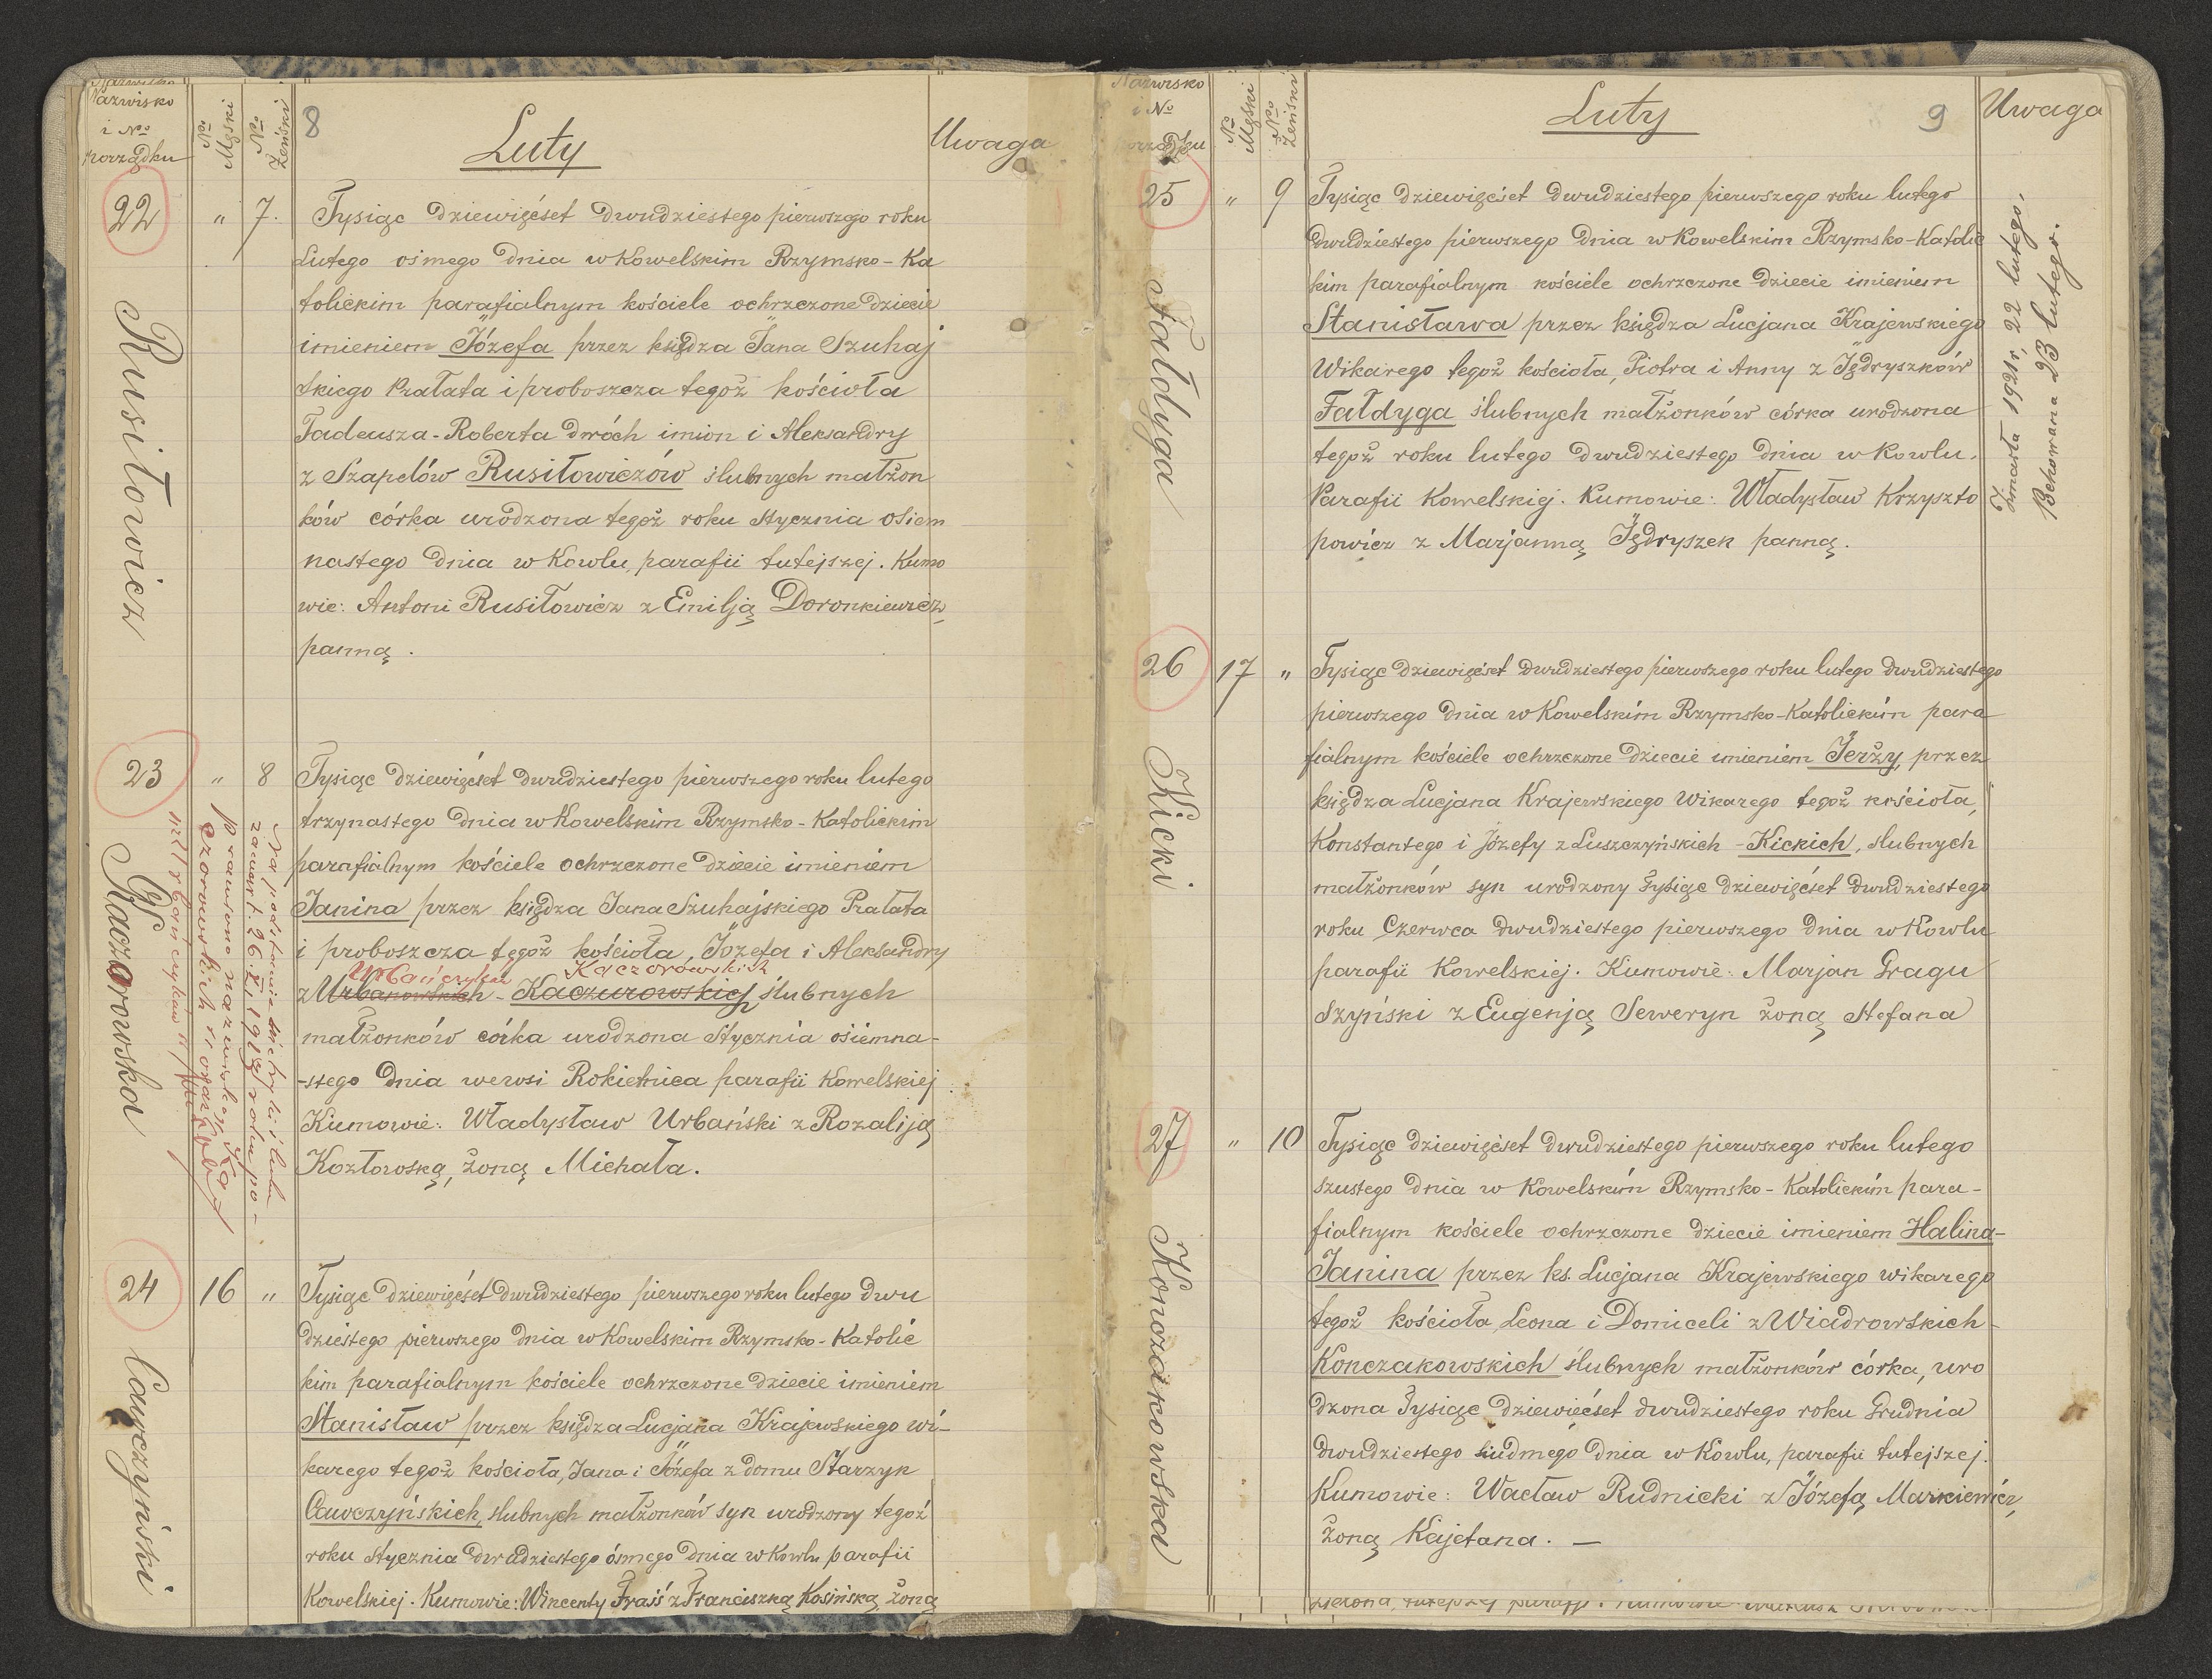 Nazwisko
i No
porządku
No
Męski
No
Żeński
8
Luty
Uwaga
22
"
7.
Rusiłowicz
Tysiąc dziewięćset dwudziestego pierwszego roku
Lutego ośmego dnia w Kowelskim Rzymsko-Ka
tolickim parafialnym kościele ochrzczone dziecie
imieniem Józefa przez księdza Jana Szuhaj
skiego Prałata i proboszcza tegoż kościoła
Tadeusza-Roberta dwóch imion i Aleksandry
z Szapelów Rusiłowiczów ślubnych małżon
ków córka urodzona tegoż roku stycznia osiem
nastego dnia w Kowlu, parafii tutejszej. Kumo
wie: Antoni Rusiłowicz z Emilją Doronkiewicz,
panną.
23
"
8
Kaczorowska
Na podstawie
zaświt. 26.XI 19 roku po-
prawiono nazwisko „Ka
czorowskich"
Tysiąc dziewięćset dwudziestego pierwszego roku lutego
trzynastego dnia w Kowelskim Rzymsko-Katolickim
parafialnym kościele ochrzczone dziecie imieniem
Janina przez księdza Jana Szuhajskiego Prałata
i proboszcza tegoż kościoła, Józefa i Aleksandry
Urbańczyków Kaczorowskich
z Urbanowskich - Kaczurowskich ślubnych
małżonków córka urodzona stycznia ośiemna-
-stego dnia we wsi Rokietnica parafii Kowelskiej.
Kumowie: Władysław Urbański z Rozaliją
Kozłowską, żoną Michała.
24
16
"
Cawczyński
Tysiąc dziewięćset dwudziestego pierwszego roku lutego dwu
dziestego pierwszego dnia w Kowelskim Rzymsko-Katolic
kim parafialnym kościele ochrzczone dziecie imieniem
Stanisław przez księdza Lucjana Krajewskiego wi-
karego tegoż kościoła, Jana i Józefa z domu Starzyk
Cawczyńskich, ślubnych małżonków syn urodzony tegoż
roku stycznia dwudziestego ósmego dnia w Kowlu parafii
Kowelskiej. Kumowie: Wincenty Fraiś z Franciszką Kosińską, żoną
Nazwisko
i No
porządku
No
Męski
No
Żeński
Luty
9
Uwaga
25
"
9
Fałdyga
Tysiąc dziewięćset dwudziestego pierwszego roku lutego
dwudziestego pierwszego dnia w Kowelskim Rzymsko-Katolic
kim parafialnym kościele ochrzczone dziecie imieniem
Stanisława przez księdza Lucjana Krajewskiego
Wikarego tegoż kościoła, Piotra i Anny z Jędryszków
Fałdyga ślubnych małżonków córka urodzona
tegoż roku lutego dwudziestego dnia w Kowlu.
Parafii Kowelskiej. Kumowie: Władysław Krzyszto
powicz z Marjanną Jędryszek panną.
Zmarła 1921 r. 22 lutego,
Pochowana 23 lutego.
26
17
"
Kicki
Tysiąc dziewięćset dwudziestego pierwszego roku lutego dwudziestego
pierwszego dnia w Kowelskim Rzymsko-Katolickim para
fialnym kościele ochrzczone dziecie imieniem Jerży, przez
księdza Lucjana Krajewskiego Wikarego tegoż kościoła,
Konstantego i Józefy z Luszczyńskich - Kickich, ślubnych
małżonków syn urodzony Tysiąc dziewięćset dwudziestego
roku Czerwca dwudziestego pierwszego dnia w Kowlu
parafii Kowelskiej. Kumowie: Marjan Gragu
szyński z Eugenją Seweryn żoną Stefana
27
"
10
Konczakowska
Tysiąc dziewięćset dwudziestego pierwszego roku lutego
szustego dnia w Kowelskim Rzymsko-Katolickim para-
fialnym kościele ochrzczone dziecie imieniem Halina-
Janina przez ks. Lucjana Krajewskiego wikarego
tegoż kościoła, Leona i Domiceli z Wiadrowskich-
Konczakowskich ślubnych małżonków córka, uro
dzona Tysiąc dziewięćset dwudziestego roku Grudnia
dwudziestego siudmego dnia w Kowlu, parafii tutejszej.
Kumowie: Wacław Rudnicki z Józefą Markiewicz,
żoną Kajetana. —